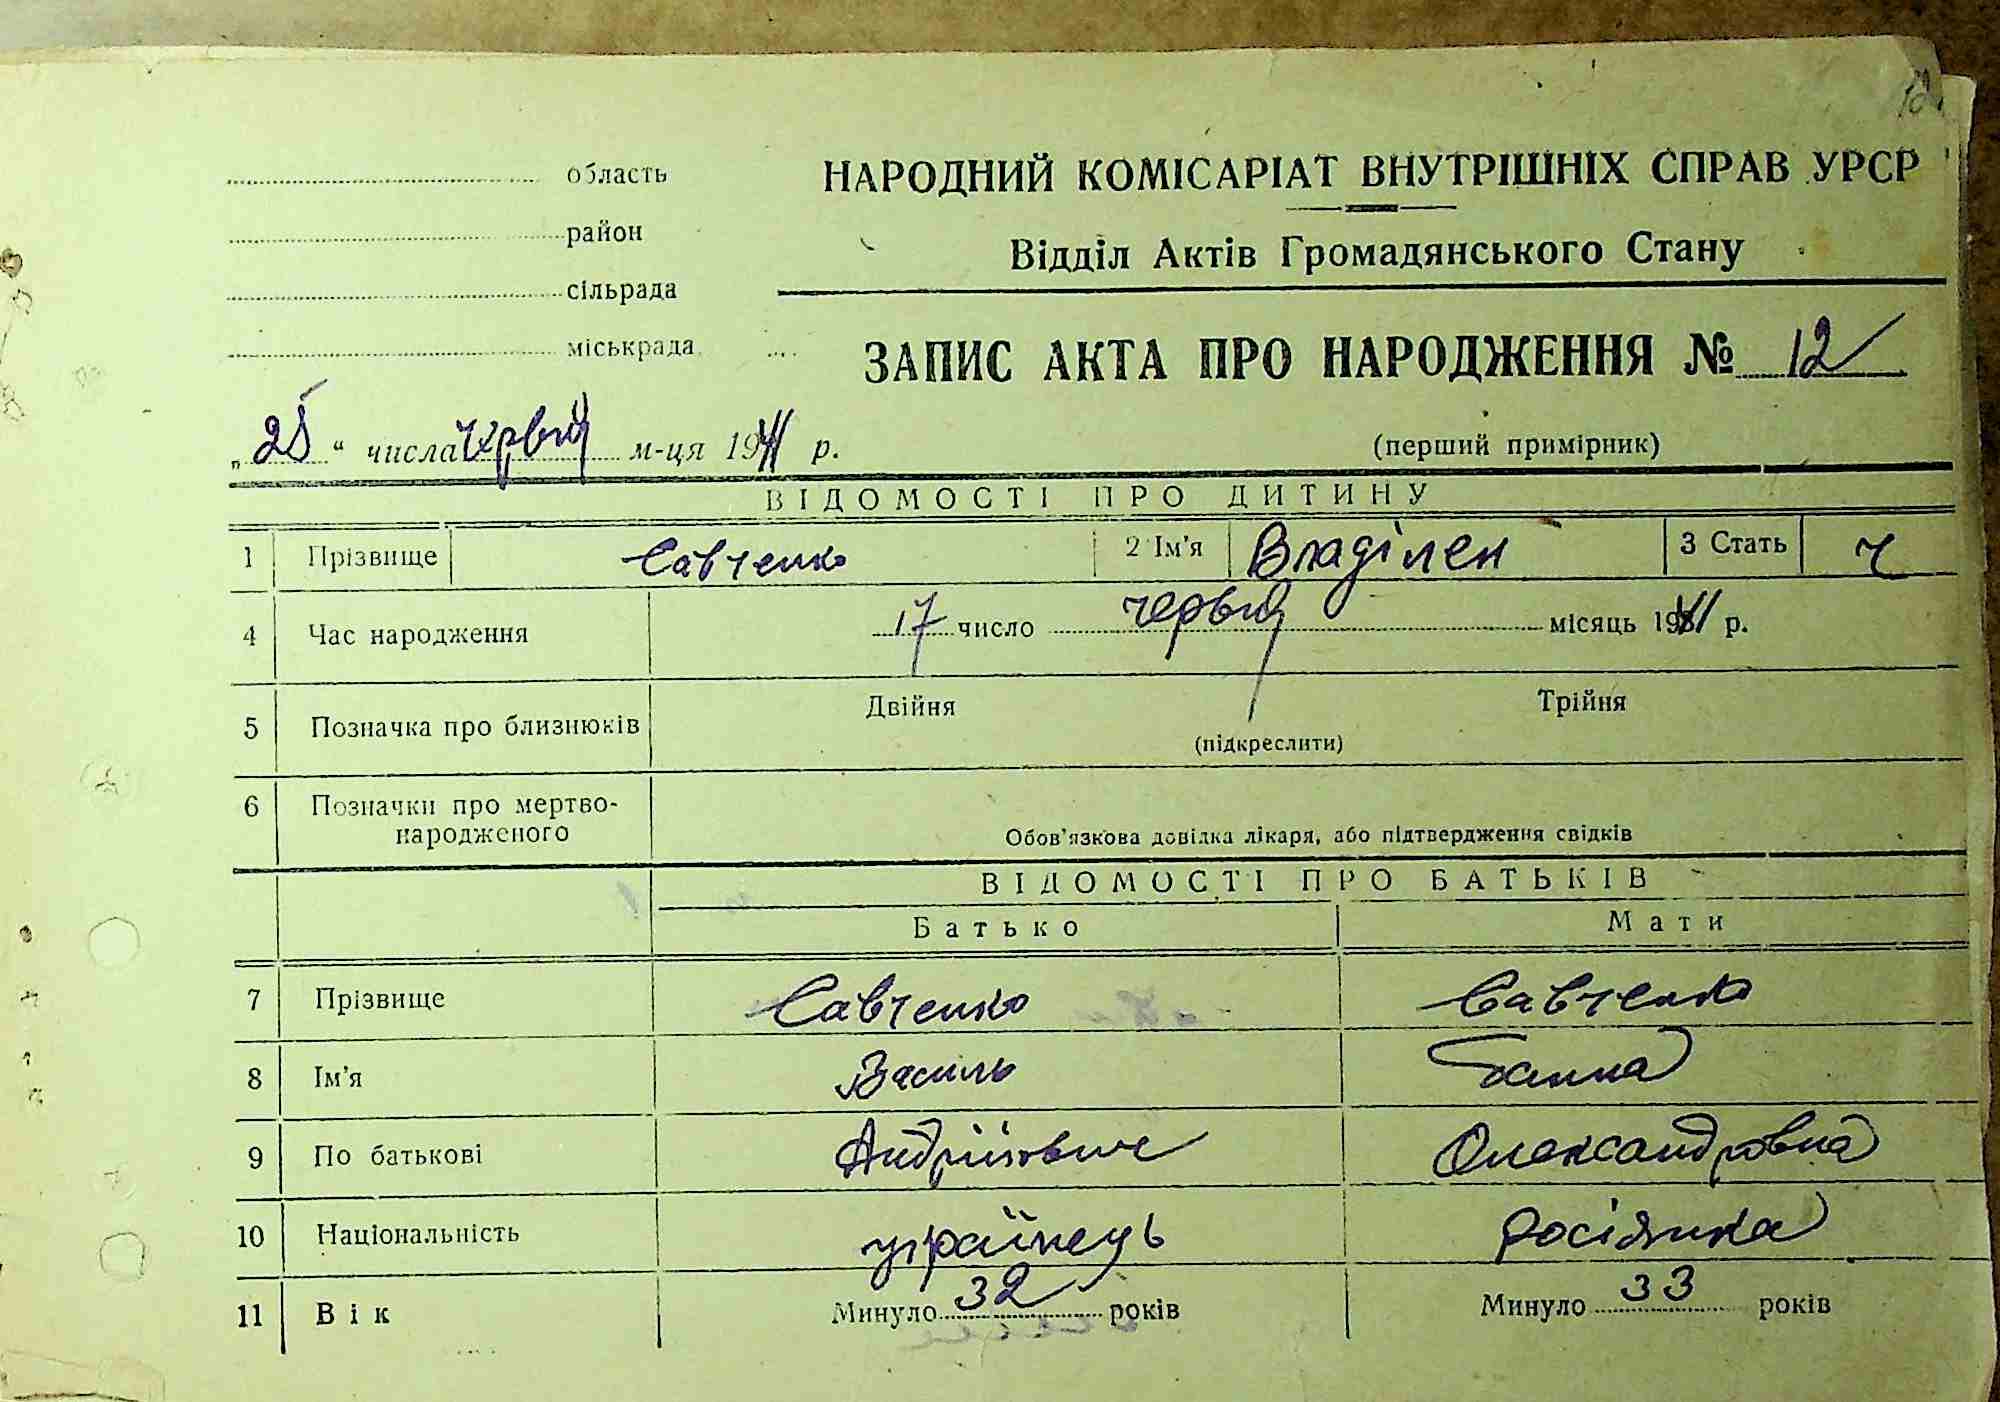 12
область
район
сільрада
міськрада
НАРОДНИЙ КОМІСАРІАТ ВНУТРІШНІХ СПРАВ УРСР
Відділ Актів Громадянського Стану
ЗАПИС АКТА ПРО НАРОДЖЕННЯ № 12
(перший примірник)
„25“ числа червня м-ця 1941 р.
ВІДОМОСТІ ПРО ДИТИНУ
1 Прізвище Савченко 2 Ім'я Владілен 3 Стать ч
4 Час народження 17 число червня місяць 1941 р.
5 Позначка про близнюків Двійня Трійня
(підкреслити)
6 Позначки про мертво-
народженого
Обов'язкова довідка лікаря, або підтвердження свідків
ВІДОМОСТІ ПРО БАТЬКІВ
Батько Мати
7 Прізвище Савченко Савченко
8 Ім'я Василь Ганна
9 По батькові Андрійович Олександровна
10 Національність українець росіянка
11 Вік Минуло 32 років Минуло 33 років